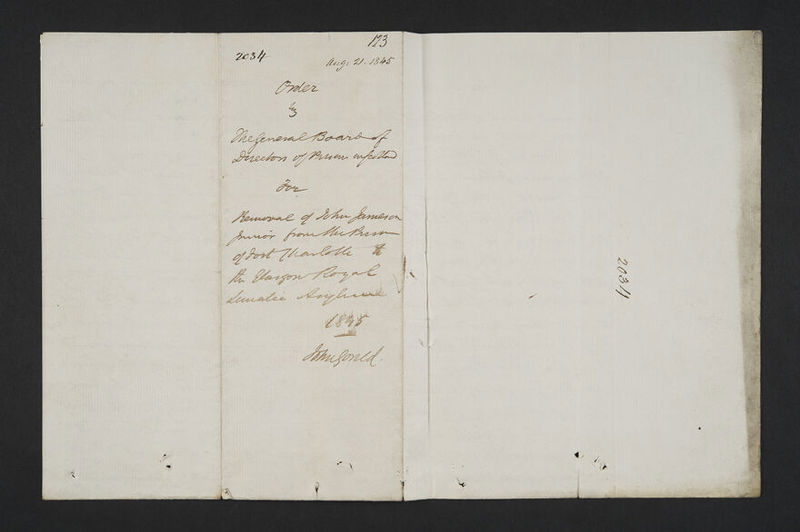 173
2034
Aug: 21. 1845
Order
by
The General Board of
Directors of Prisons in Scotland
For
Removal of John Jameson
Junior from the Prison
of Fort Charlotte to
the Glasgow Royal
Lunatic Asylum
1845
John Gould.
2034